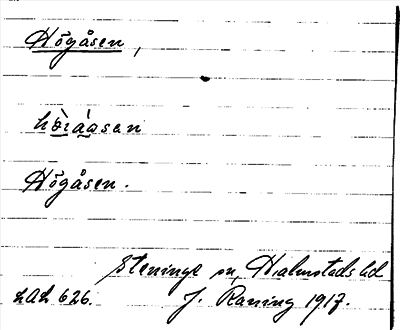 Högåsen,
hö̀ɪáɑsen
Högåsen.
Steninge sn, Halmstads hd
LAL 626. J. Raning 1917.